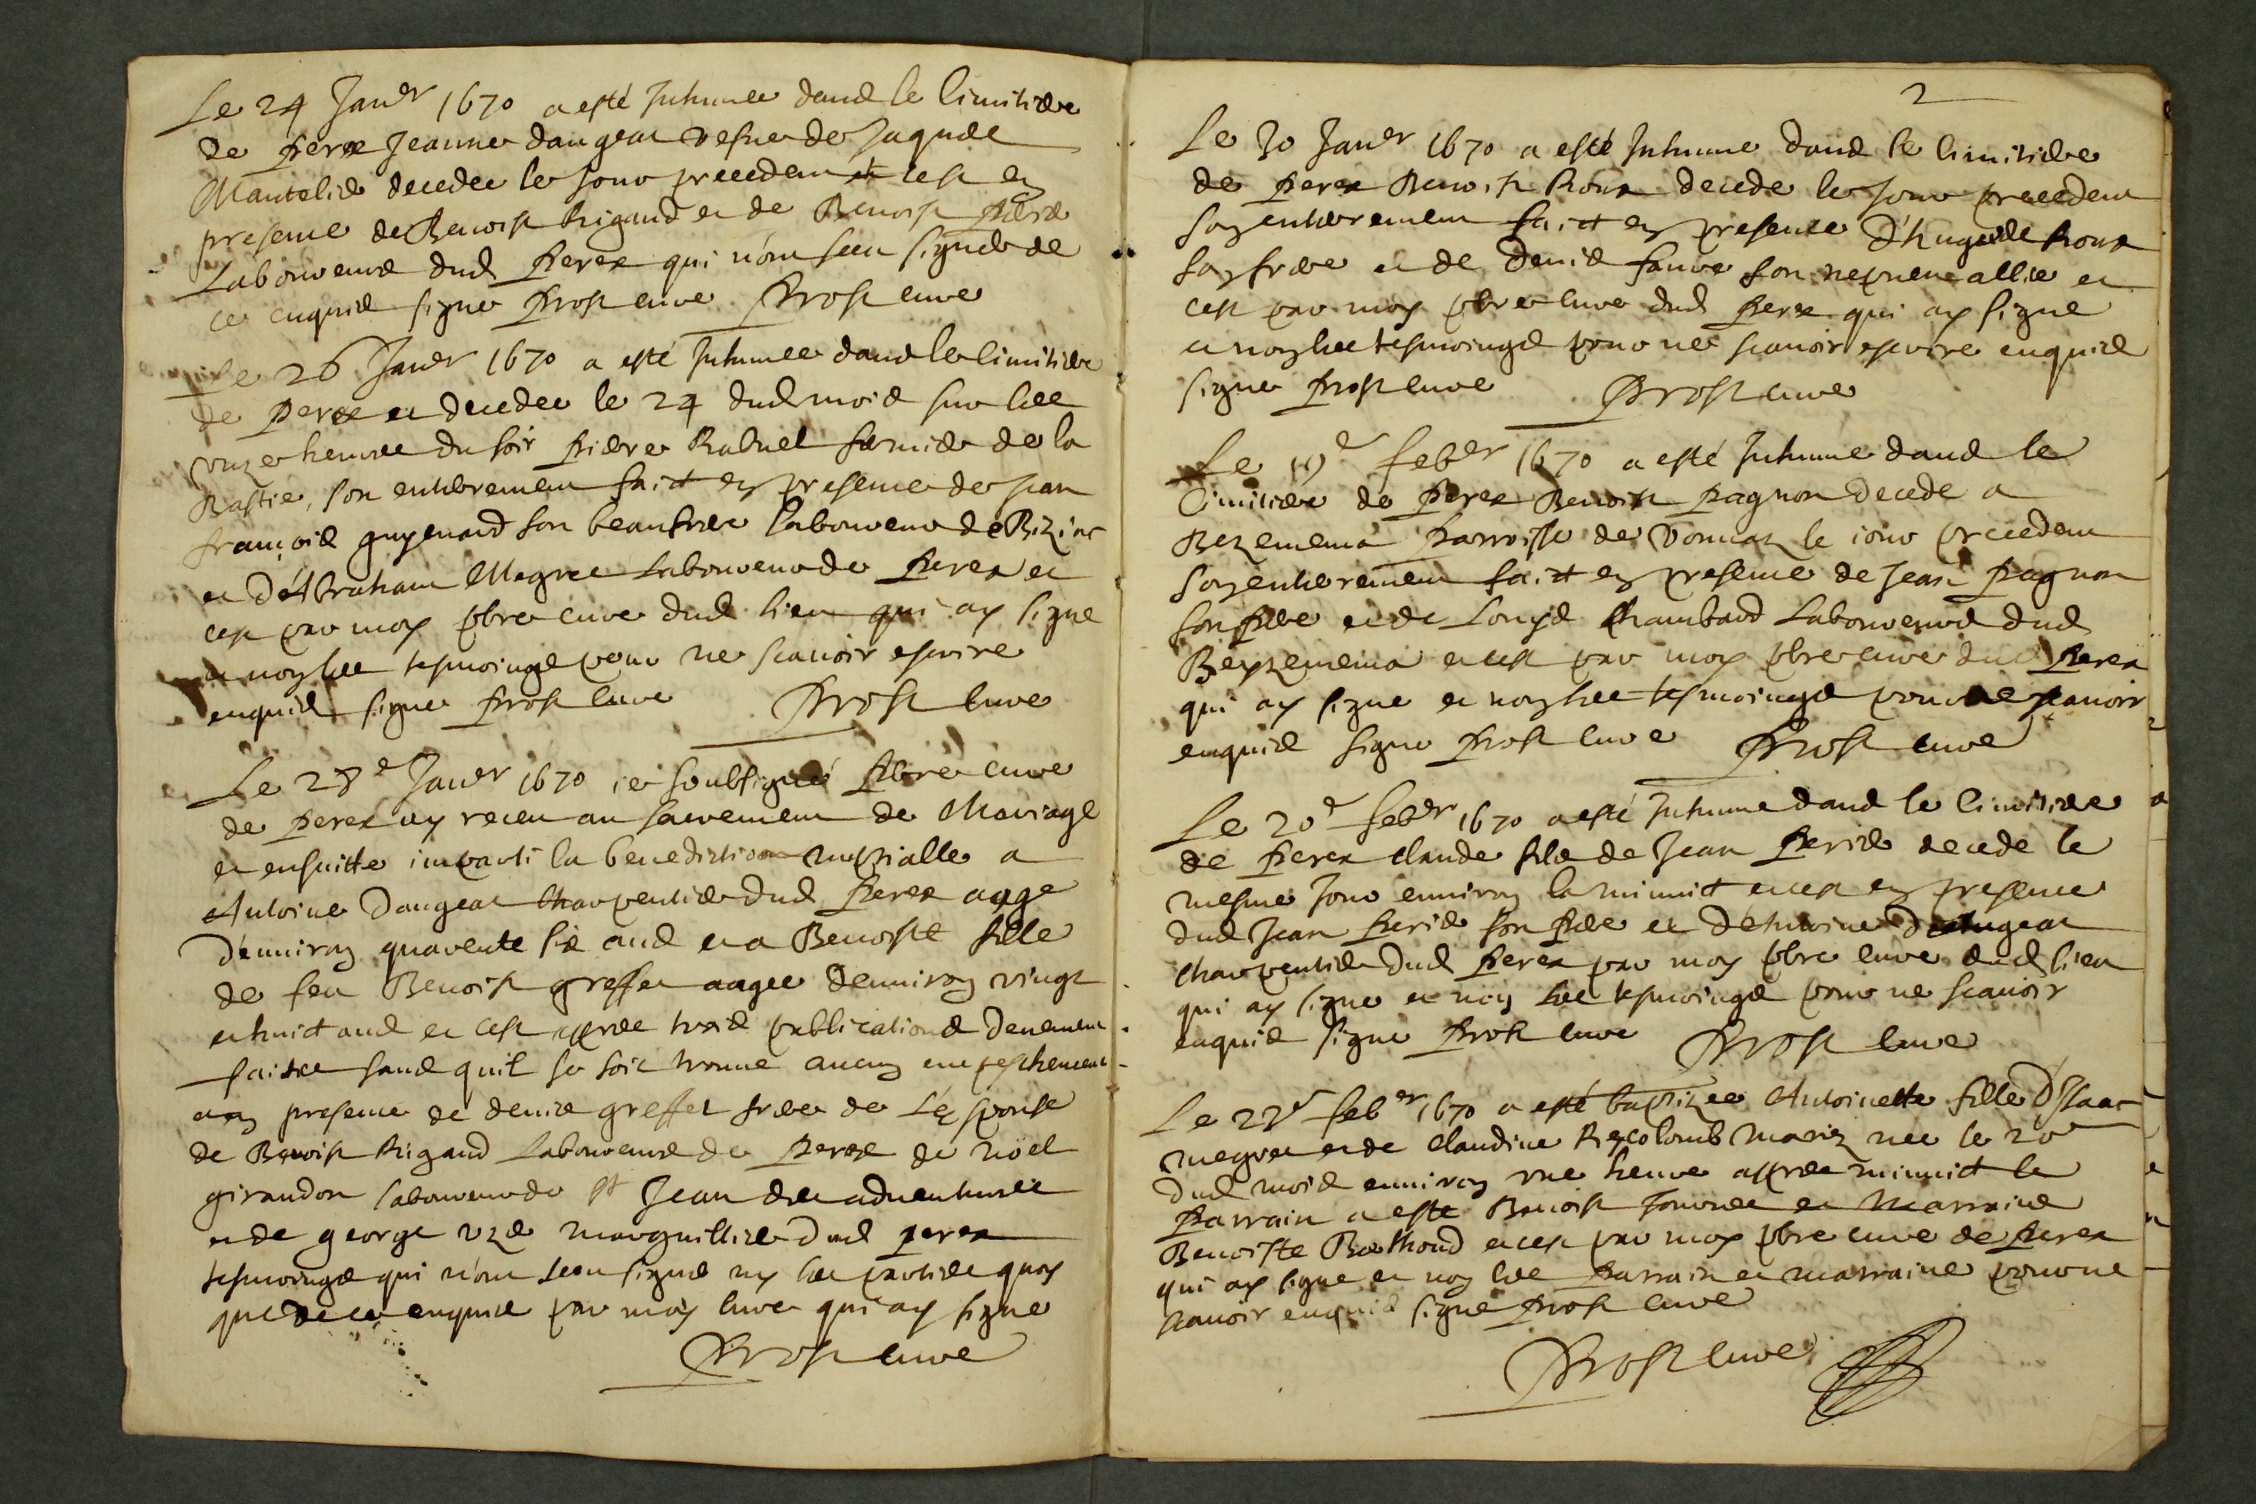 Le 24 Janer 1670 a esté Inhumee dans le Cimitiere
de perex Jeanne dangeat vefue de Jaques
Mantelier decedee le jour precedent et cest en
presence de Benoist Rigaud et de Benoist
Laboureurs dud perex qui nont sceu signer de
ce enquis signe Prost cure Prost cure
Le 26 Janer 1670 a esté Inhumee dans le Cimitiere
de perex et decedee le 24 dud mois sur les
unze heures du soir pierre Rabuel fermier de la
Bastie, son enterrement faict en presence de jean
françois guyenard son beaufrere laboureur de Biziat
et d'Abraham Megret Laboureur de perex et
cest par moy pbre cure dud lieu qui ay signe
et non les tesmoings pour ne scauoir escrire
enquis signe Prost cure Prost cure
Le 28e Janer 1670 ie soubsigné pbre cure
de perex ay receu au sacrement de Mariage
et ensuitte imparti la benediction nuptialle a
Antoine Dangeat Charpentier dud perex aage
d'enuiron quarente six ans et a Benoiste fille
de feu Benoist greffet aagee denuiron vingt
et huict ans et cest apres trois publications deuement
faites sans quil se soit trouue aucun empeschement
en presence de denis greffet frere de L'espouse
de Benoist Rigaud Laboureurs de perex de noël
girandon laboureur de St Jean des aduentures
et de george marguillier dud perex
tesmoings qui nont sceu signe ny les parties quoy
que de ce enquis par moy cure qui ay signe
Prost cure
2
Le 30 Janer 1670 a esté Inhume dans le Cimitiere
de perex Benoist Roux decede le jour precedent
son enterrement faict en presence d'hugues Roux
son frere et de denis faure son nepueu allie et
cest par moy pbre cure dud perex qui ay signe
et non les tesmoings pour ne scauoir escrire enquis
signe Prost cure Prost cure
Le feber 1670 a esté Inhume dans le
Cimitiere de perex Benoist pagnon decede a
Bezemema parroisse de vonnaz le iour precedent
son enterrement faict en presence de Jean pagnon
son pere et de Louys Chambard Laboureurs dud
Beyzemema et cest par moy pbre cure dud perex
qui ay signe et non les tesmoings pour ne scauoir
enquis signe Prost cure Prost cure
Le 20e feber 1670 a esté Inhume dans le Cimitiere
de perex claude fils de Jean perier decede le
mesme jour enuiron la minuict et cest en presence
dud Jean perier son pere et d'Antoine Dangeat
charpentier dud perex par moy pbre cure dud lieu
qui ay signe et non les tesmoings pour ne scauoir
enquis signe Prost cure Prost cure
Le 22e feber 1670 a esté baptizee Antoinette fille d'Isaac
megret et de claudine Reycolomb mariez nee le 20e
dud mois enuiron une heure apres minuict le
parrain a esté Benoist et Marraine
Benoiste Berthoud et cest par moy pbre cure de perex
qui ay signe et non les parrain et marraine pour ne
scauoir enquis signe Prost cure
Prost cure